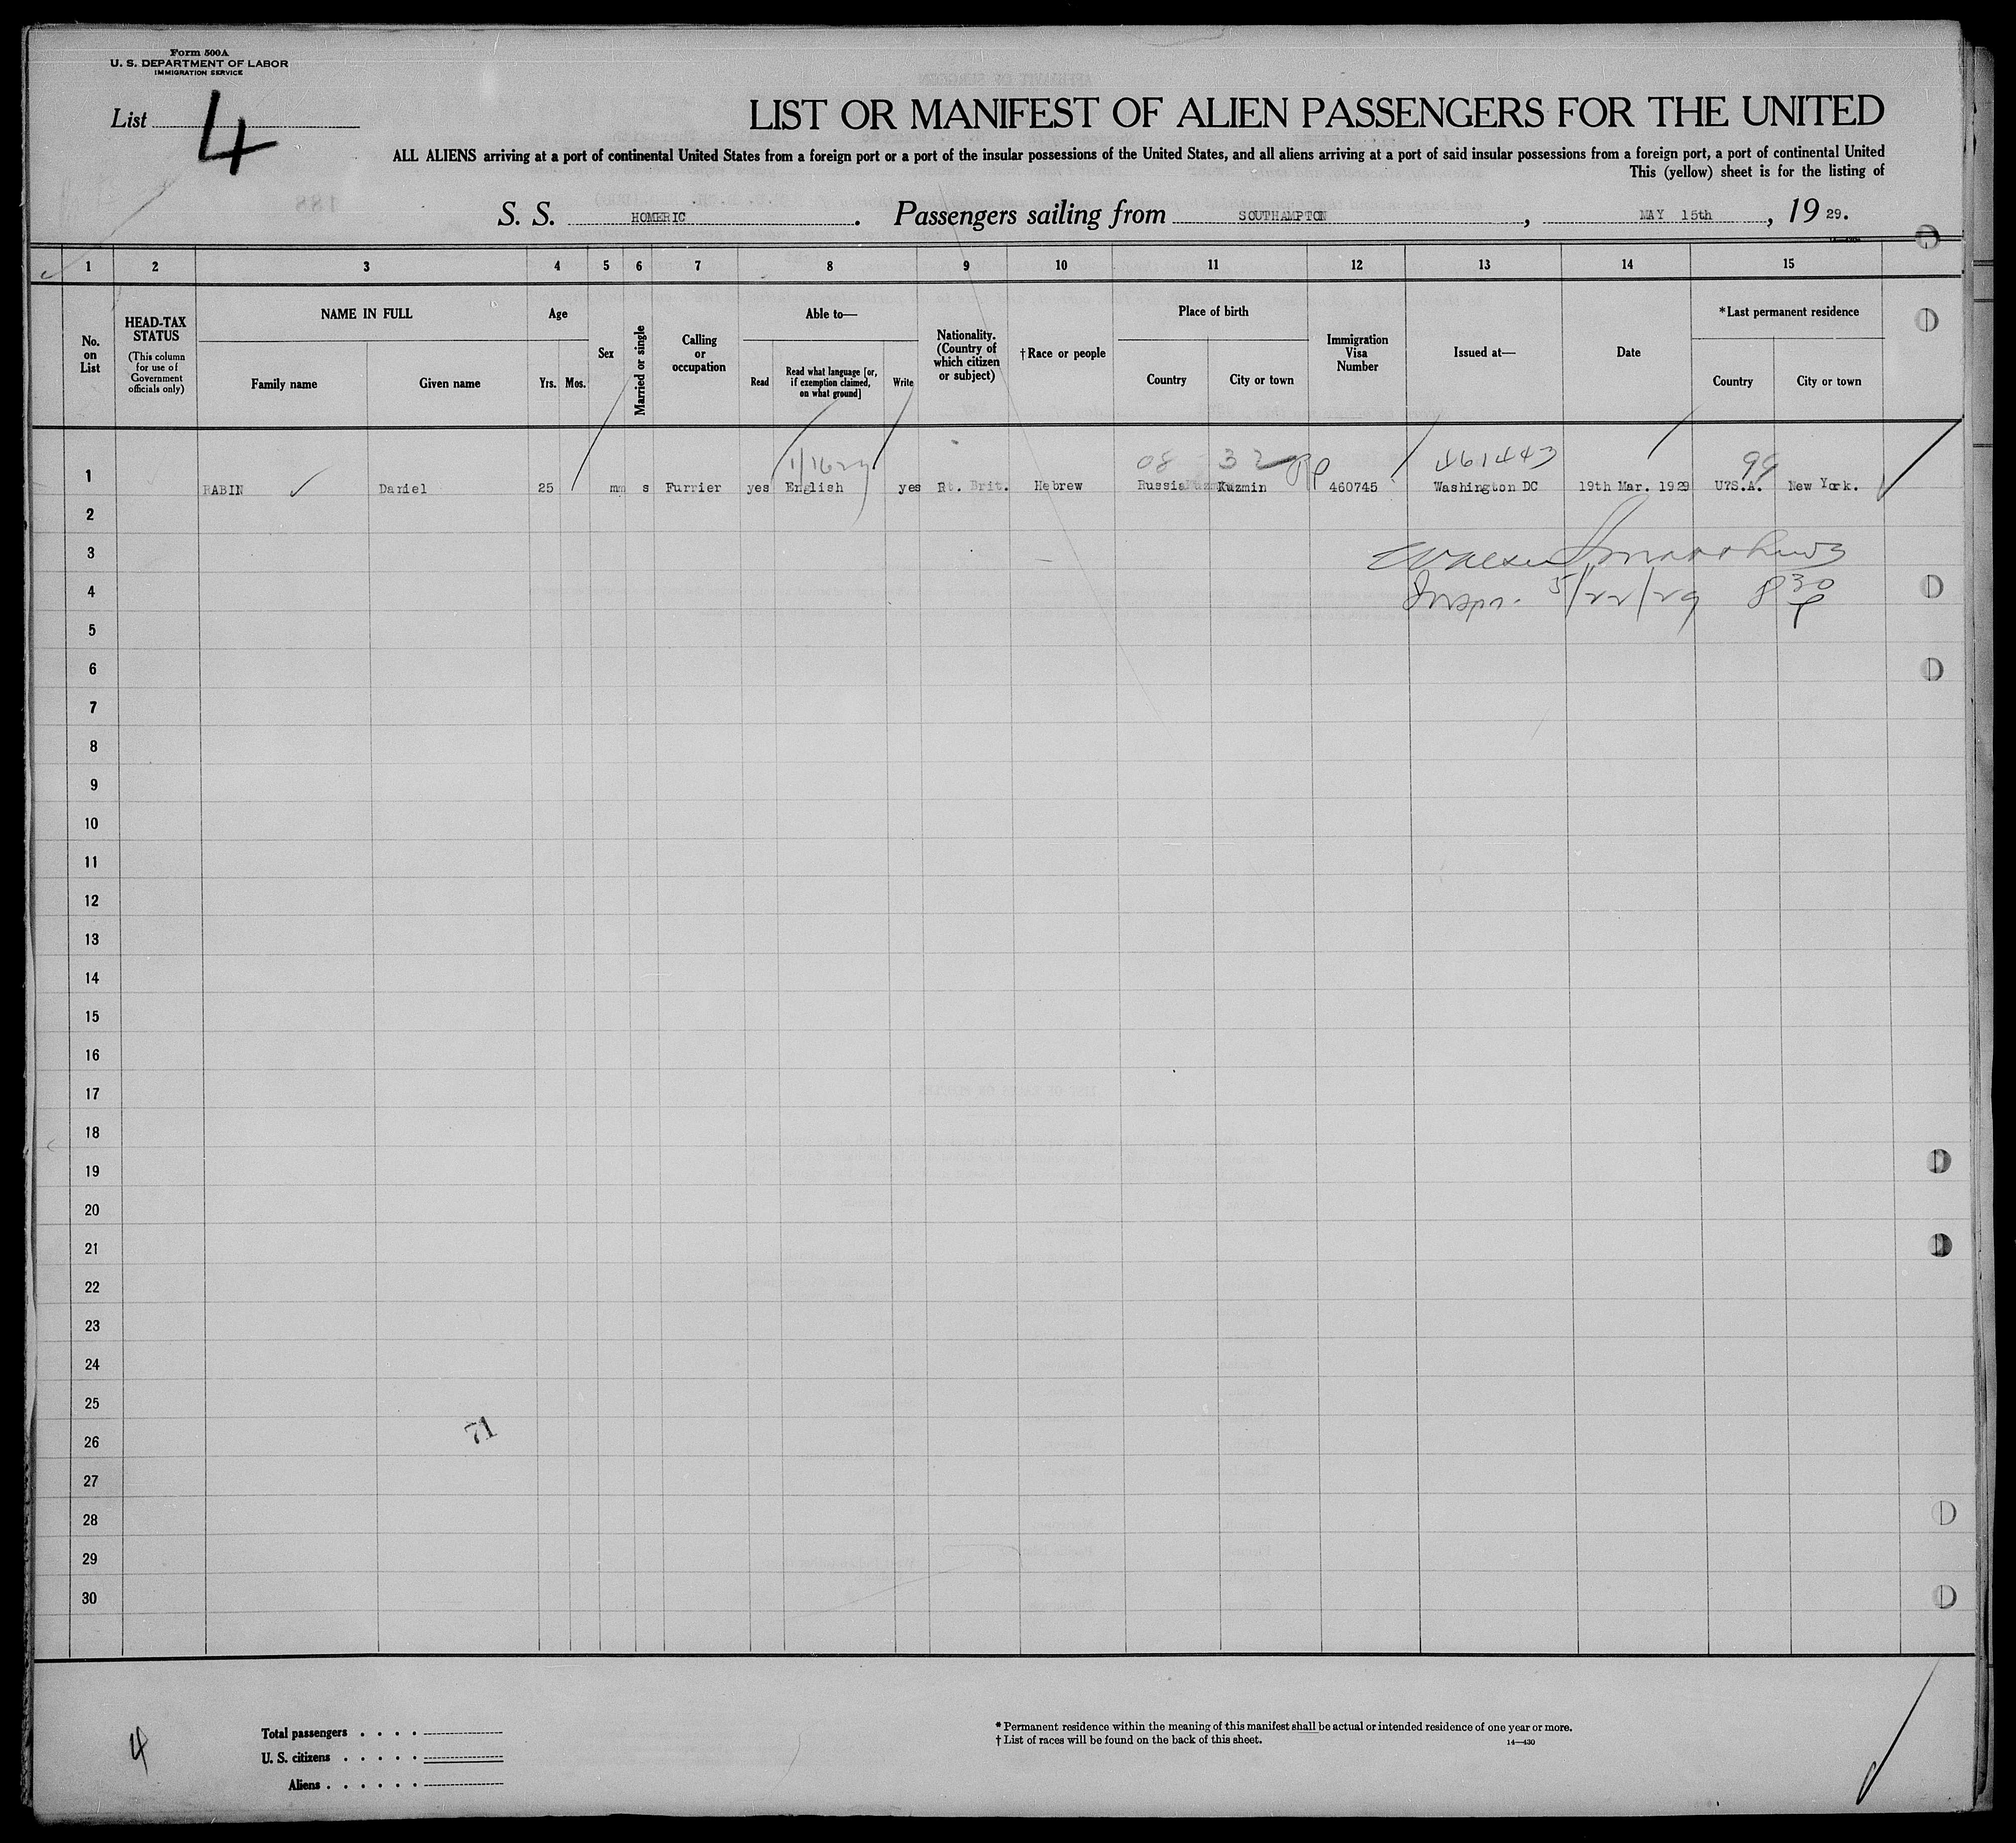 Form 500A
U. S. DEPARTMENT OF LABOR
IMMIGRATION SERVICE
List 4
LIST OR MANIFEST OF ALIEN PASSENGERS FOR THE UNITED
ALL ALIENS arriving at a port of continental United States from a foreign port or a port of the insular possessions of the United States, and all aliens arriving at a port of said insular possessions from a foreign port, a port of continental United
This (yellow) sheet is for the listing of
S. S. HOMERIC. Passengers sailing from SOUTHAMPTON, MAY 15th, 1929.
1 2 3 4 5 6 7 8 9 10 11 12 13 14 15
No. on List
HEAD-TAX STATUS (This column for use of Government officials only)
NAME IN FULL
Family name Given name
Age
Yrs. Mos.
Sex
Married or single
Calling or occupation
Able to—
Read Read what language [or, if exemption claimed, on what ground] Write
Nationality. (Country of which citizen or subject)
†Race or people
Place of birth
Country City or town
Immigration Visa Number
Issued at—
Date
*Last permanent residence
Country City or town
08 32 461443 99
1 RABIN Daniel 25 m s Furrier yes English yes Rt. Brit. Hebrew Russia Kuzmin 460745 Washington DC 19th Mar. 1929 U?S.A. New York.
2
3
4 Inspr. 5/22/29 8 30
5
6
7
8
9
10
11
12
13
14
15
16
17
18
19
20
21
22
23
24
25
71
26
27
28
29
30
4
Total passengers
U. S. citizens
Aliens
* Permanent residence within the meaning of this manifest shall be actual or intended residence of one year or more.
† List of races will be found on the back of this sheet.
14—430